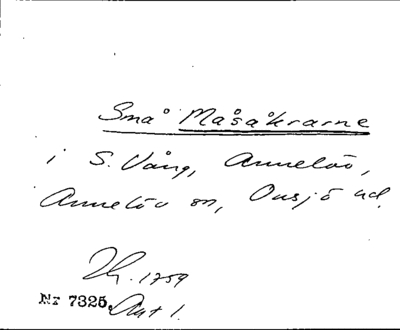 Små Måsåkrarne
i S. Vång, Annelöv,
Annelöv sn, Onsjö hd.
Nr 7325. Akt 1.